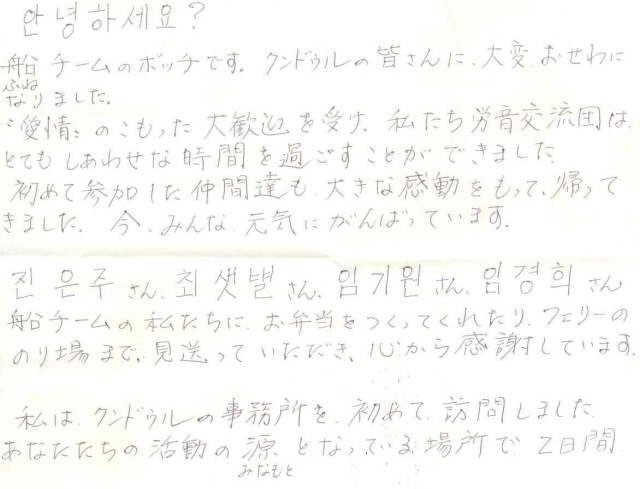 안녕하세요?
船チームのボッチです。クンドゥルの皆さんに、大変、おせわに
ふね
なりました。
"愛情"のこもった大歓迎を受け、私たち労音交流団は、
とてもしあわせな時間を過ごすことができました。
初めて参加した仲間達も、大きな感動をもって、帰って
きました。今、みんな、元気にがんばっています。
진은주さん、최샛별さん、임기원さん、임경희さん
船チームの私たちに、お弁当をつくってくれたり、フェリーの
のり場まで、見送っていただき、心から感謝しています。
私は、クンドゥルの事務所を、初めて、訪問しました。
あなたたちの活動の源となっている場所で、2日間
みなもと